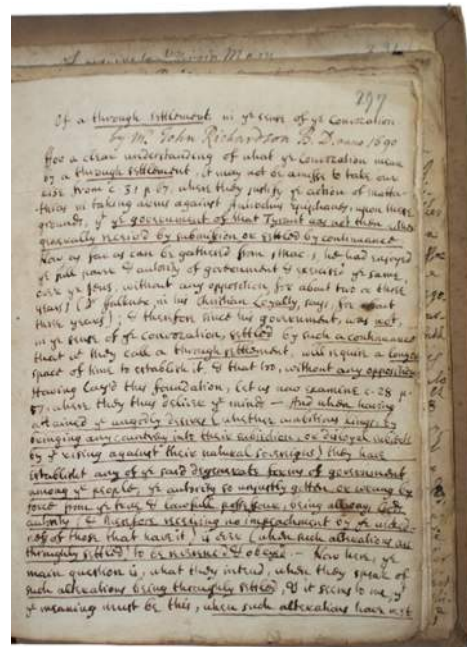 297
Of a through settlement in ye sense of ye Convocation
by Mr. John Richardson B. D. anno 1690
For a clear understanding of what ye Convocation mean
by a through settlement, it may not be amisse to take our
rise from c. 31 p. 67, where they justify ye action of Matta-
thias in taking arms against Antiochus Epiphanes, upon these
grounds, yt ye government of that Tyrant was not then either
generally received by submission or settled by continuance
Now as far as can be gathered from 1 Mac. 1, he had enjoyed
ye full power & autority of government & exercised ye same
over ye Jews, without any opposition, for about two or three
years, (Dr Falkner, in his Christian Loyalty, says, for about
three years); & therefore since his government, was not,
in ye sense of ye Convocation, settled by such a continuance
that wt they call a through settlement, will require a longer
space of time to establish it, & that too, without any opposition
Having lay'd this foundation, let us now examine c. 28 p.
57. where they thus deliver yr minds — And when having
attained yr ungodly desires (whether ambitious kings, by
bringing any country into their subjection, or disloyal subjects
by yr rising against their natural sovereigns) they have
establisht any of ye said degenerate forms of government
among yr people, ye autority so unjustly gotten, or wrung by
force from ye true & lawfull possessour, being alwayes Gods
autority (& therefore receiving no impeachment by ye wicked-
nes of those that have it) is ever (when such alterations are
throughly settled) to be reverenc'd & obeyed — Now here, ye
main question is, what they intend, when they speak of
such alterations being throughly settled, & it seems to me, yt
yr meaning must be this, when such alterations have not